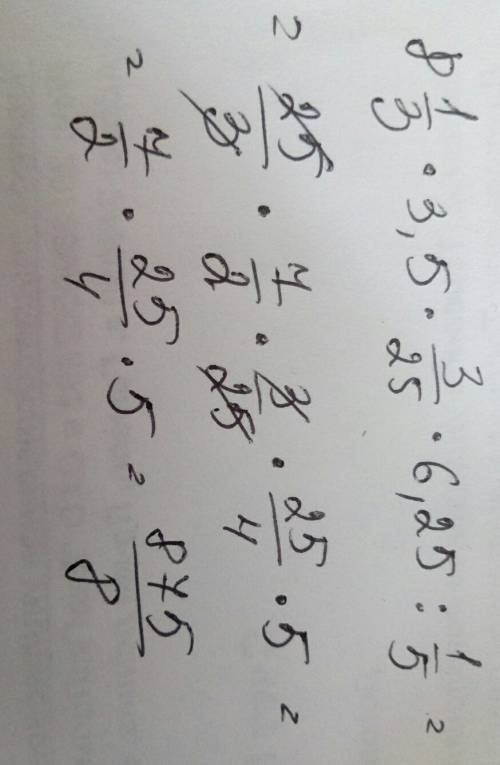 8 1/3 · 3,5 · 3/25 · 6,25 : 1/5 =
= 25/3 · 7/2 · 3/25 · 25/4 · 5 =
= 7/2 · 25/4 · 5 = 875/8